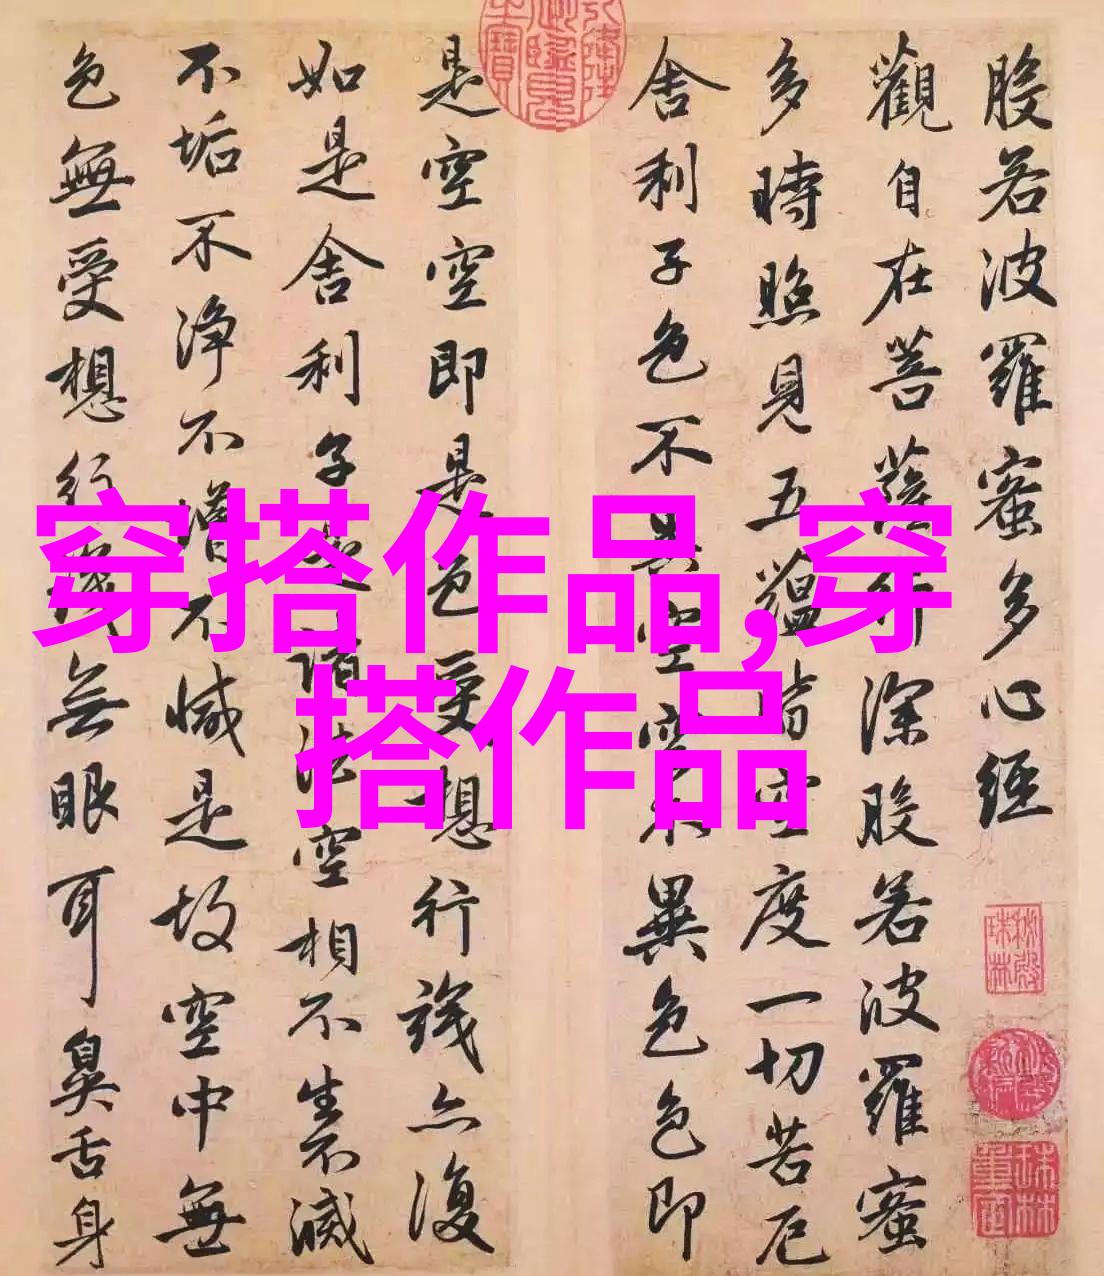 般若波羅蜜多心經
觀自在菩薩行深般若波羅蜜
多時照見五蘊皆空度一切苦厄
舍利子色不異空空不異色色即
是空空即是色受想行識亦復
如是舍利子是諸法空相不生不滅
不垢不淨不增不減是故空中無
色無受想行識無眼耳鼻舌身
穿搭作品,穿
搭作品